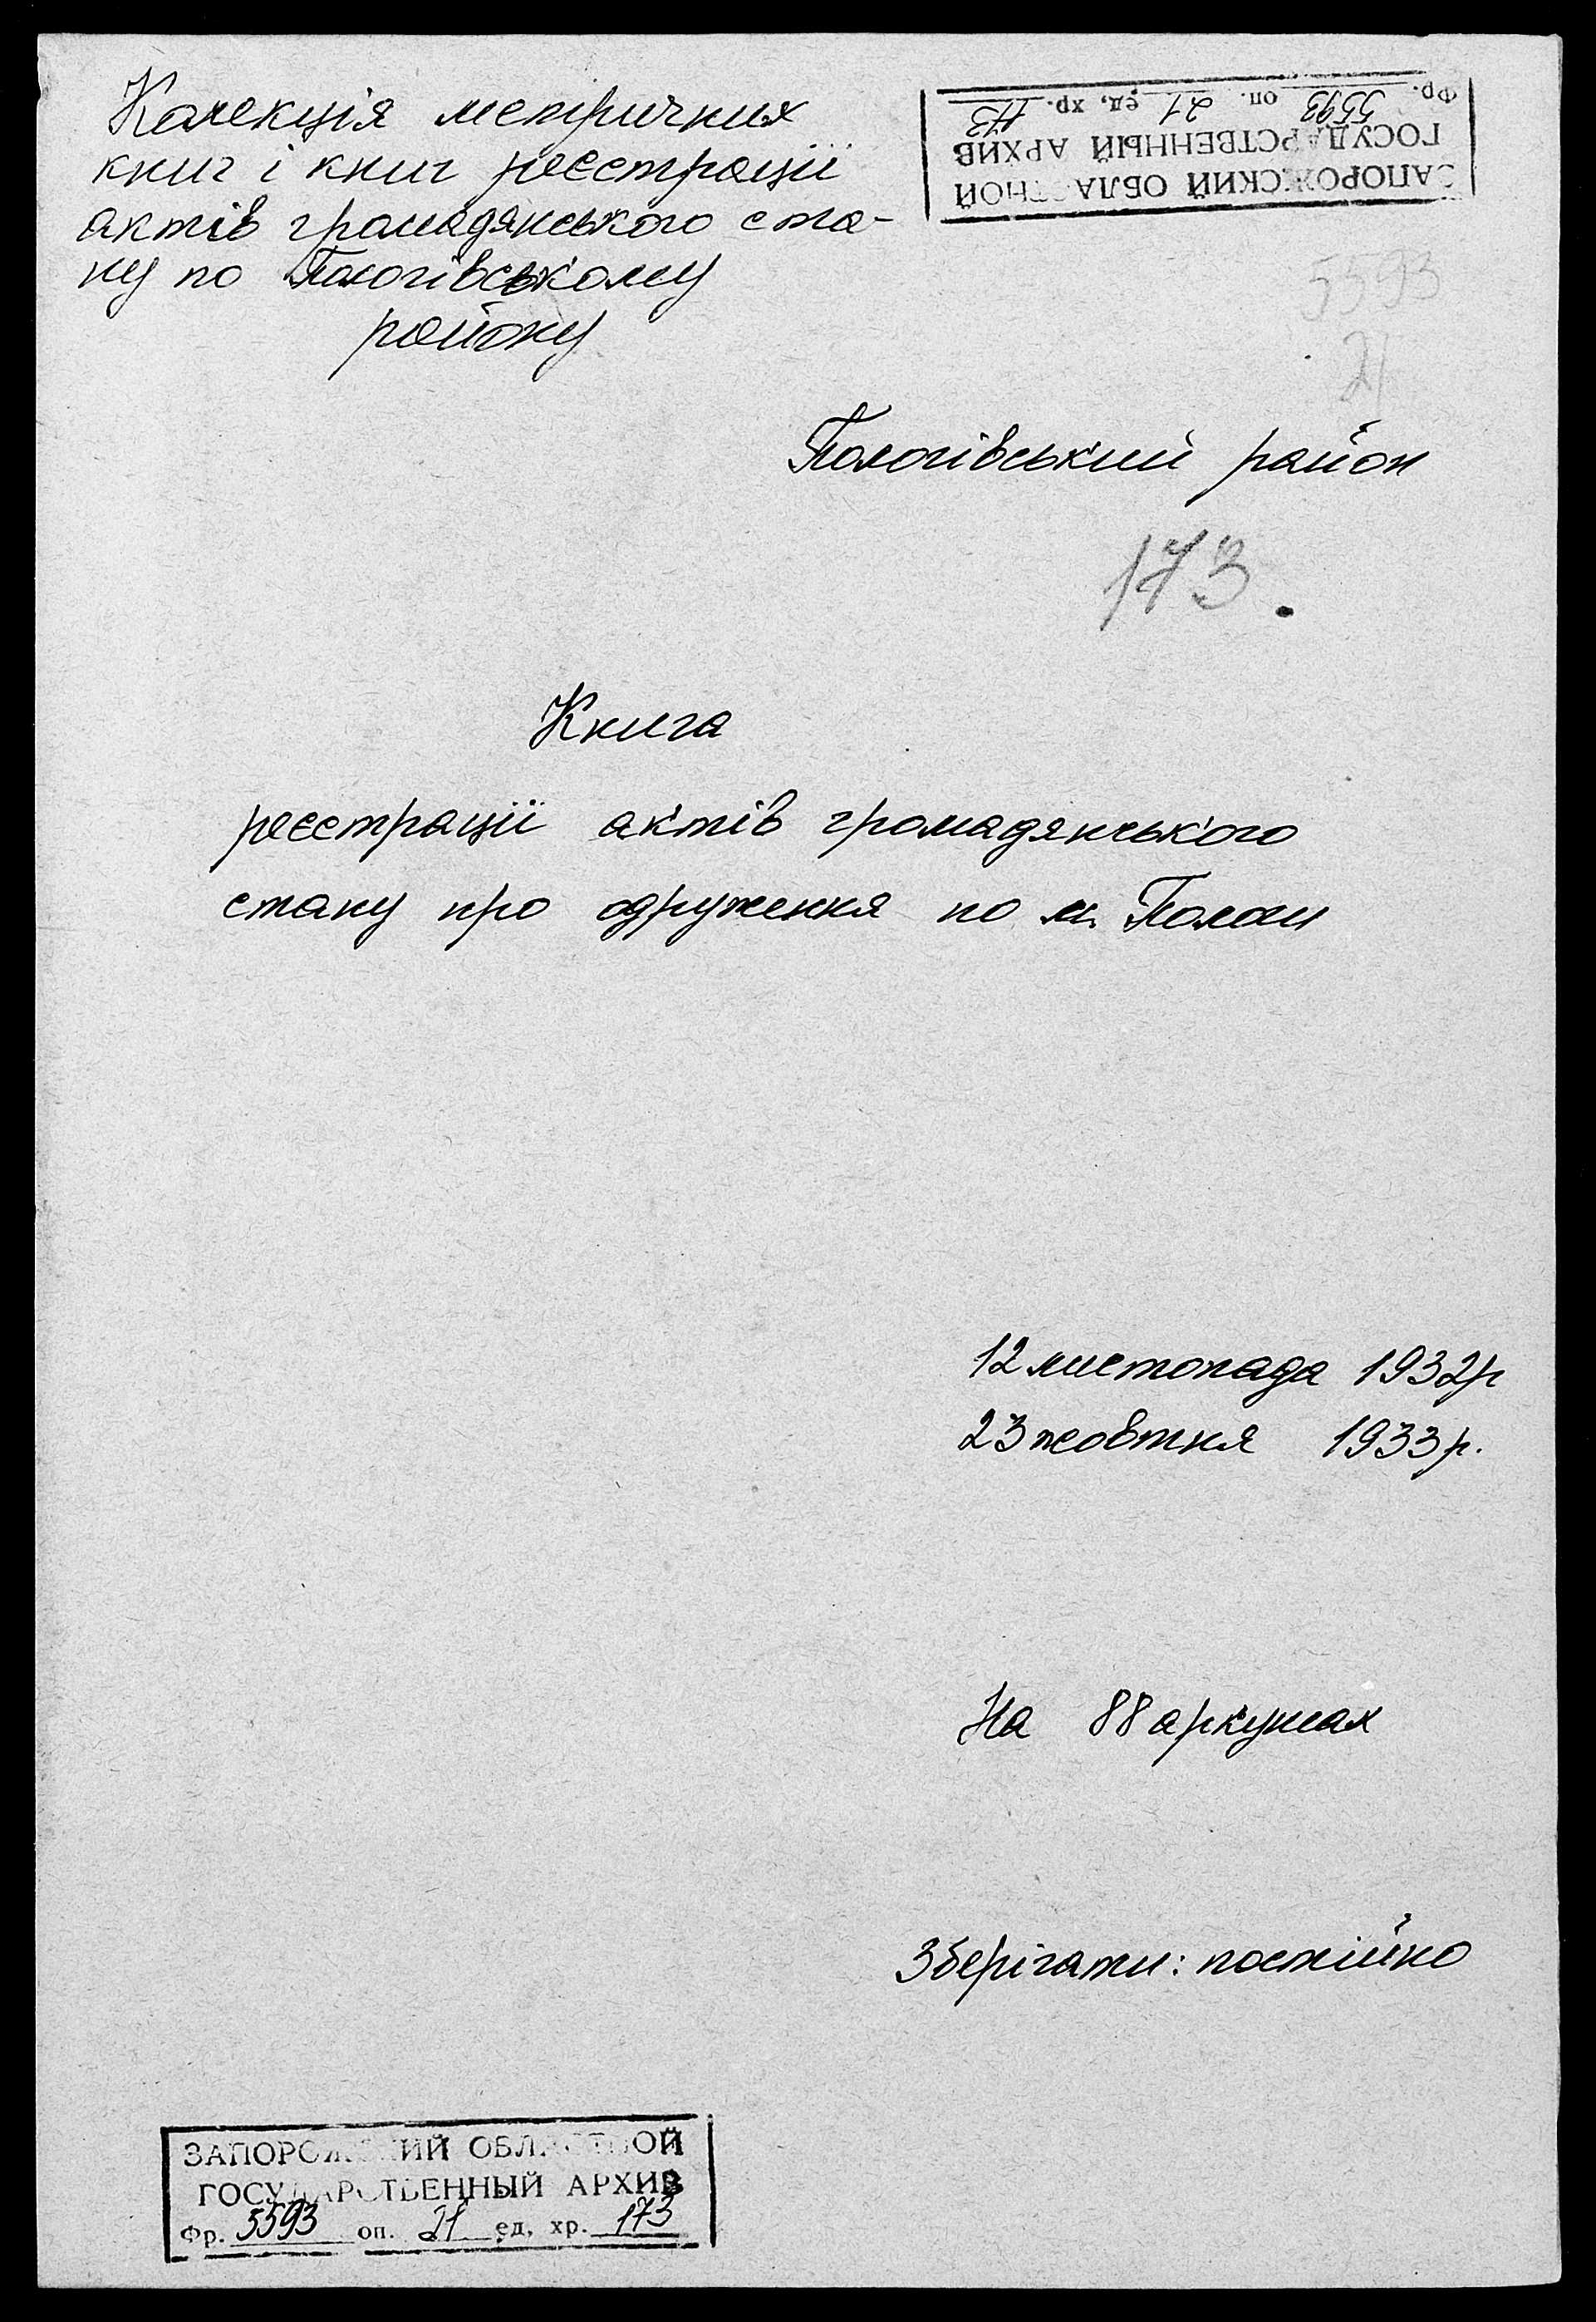 Колекція метричних
книг і книг реєстрації
актів громадянського ста-
ну по Пологівському
району
Фр. 5593 оп. 21 ед. хр. 173
ГОСУДАРСТВЕННЫЙ АРХИВ
ЗАПОРОЖСКИЙ ОБЛАСТНОЙ
5593
21
Пологівський район
173.
Книга
реєстрації актів громадянського
стану про одруження по м. Пологи
12 листопада 1932р
23 жовтня 1933р.
На 88 аркушах
Зберігати: постійно
ЗАПОРОЖСКИЙ ОБЛАСТНОЙ
ГОСУДАРСТВЕННЫЙ АРХИВ
Фр. 5593 оп. 21 ед, хр. 173